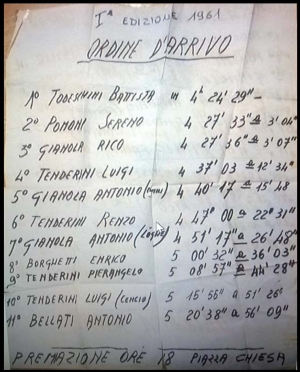 Iª EDIZIONE 1961
ORDINE D'ARRIVO
1º TODESCHINI BATTISTA in 4h 24' 29"
2º POMONI SERENO 4 27' 33" a 3' 04"
3º GIANOLA RICO 4 27' 36" a 3' 07"
4º TENDERINI LUIGI 4 37' 03 a 12' 34"
5º GIANOLA ANTONIO 4 40' 17 a 15' 48
6º TENDERINI RENZO 4 47' 00 a 22' 31"
7º GIANOLA ANTONIO 4 51' 17" a 26' 48"
8' BORGHETTI ENRICO 5 00' 32" a 36' 03"
9º TENDERINI PIERANGELO 5 08' 57" a 44' 28"
10º TENDERINI LUIGI (CENCIO) 5 15' 55" a 51' 26"
11º BELLATI ANTONIO 5 20' 38" a 56' 09"
PREMAZIONE ORE 18 PIAZZA CHIESA